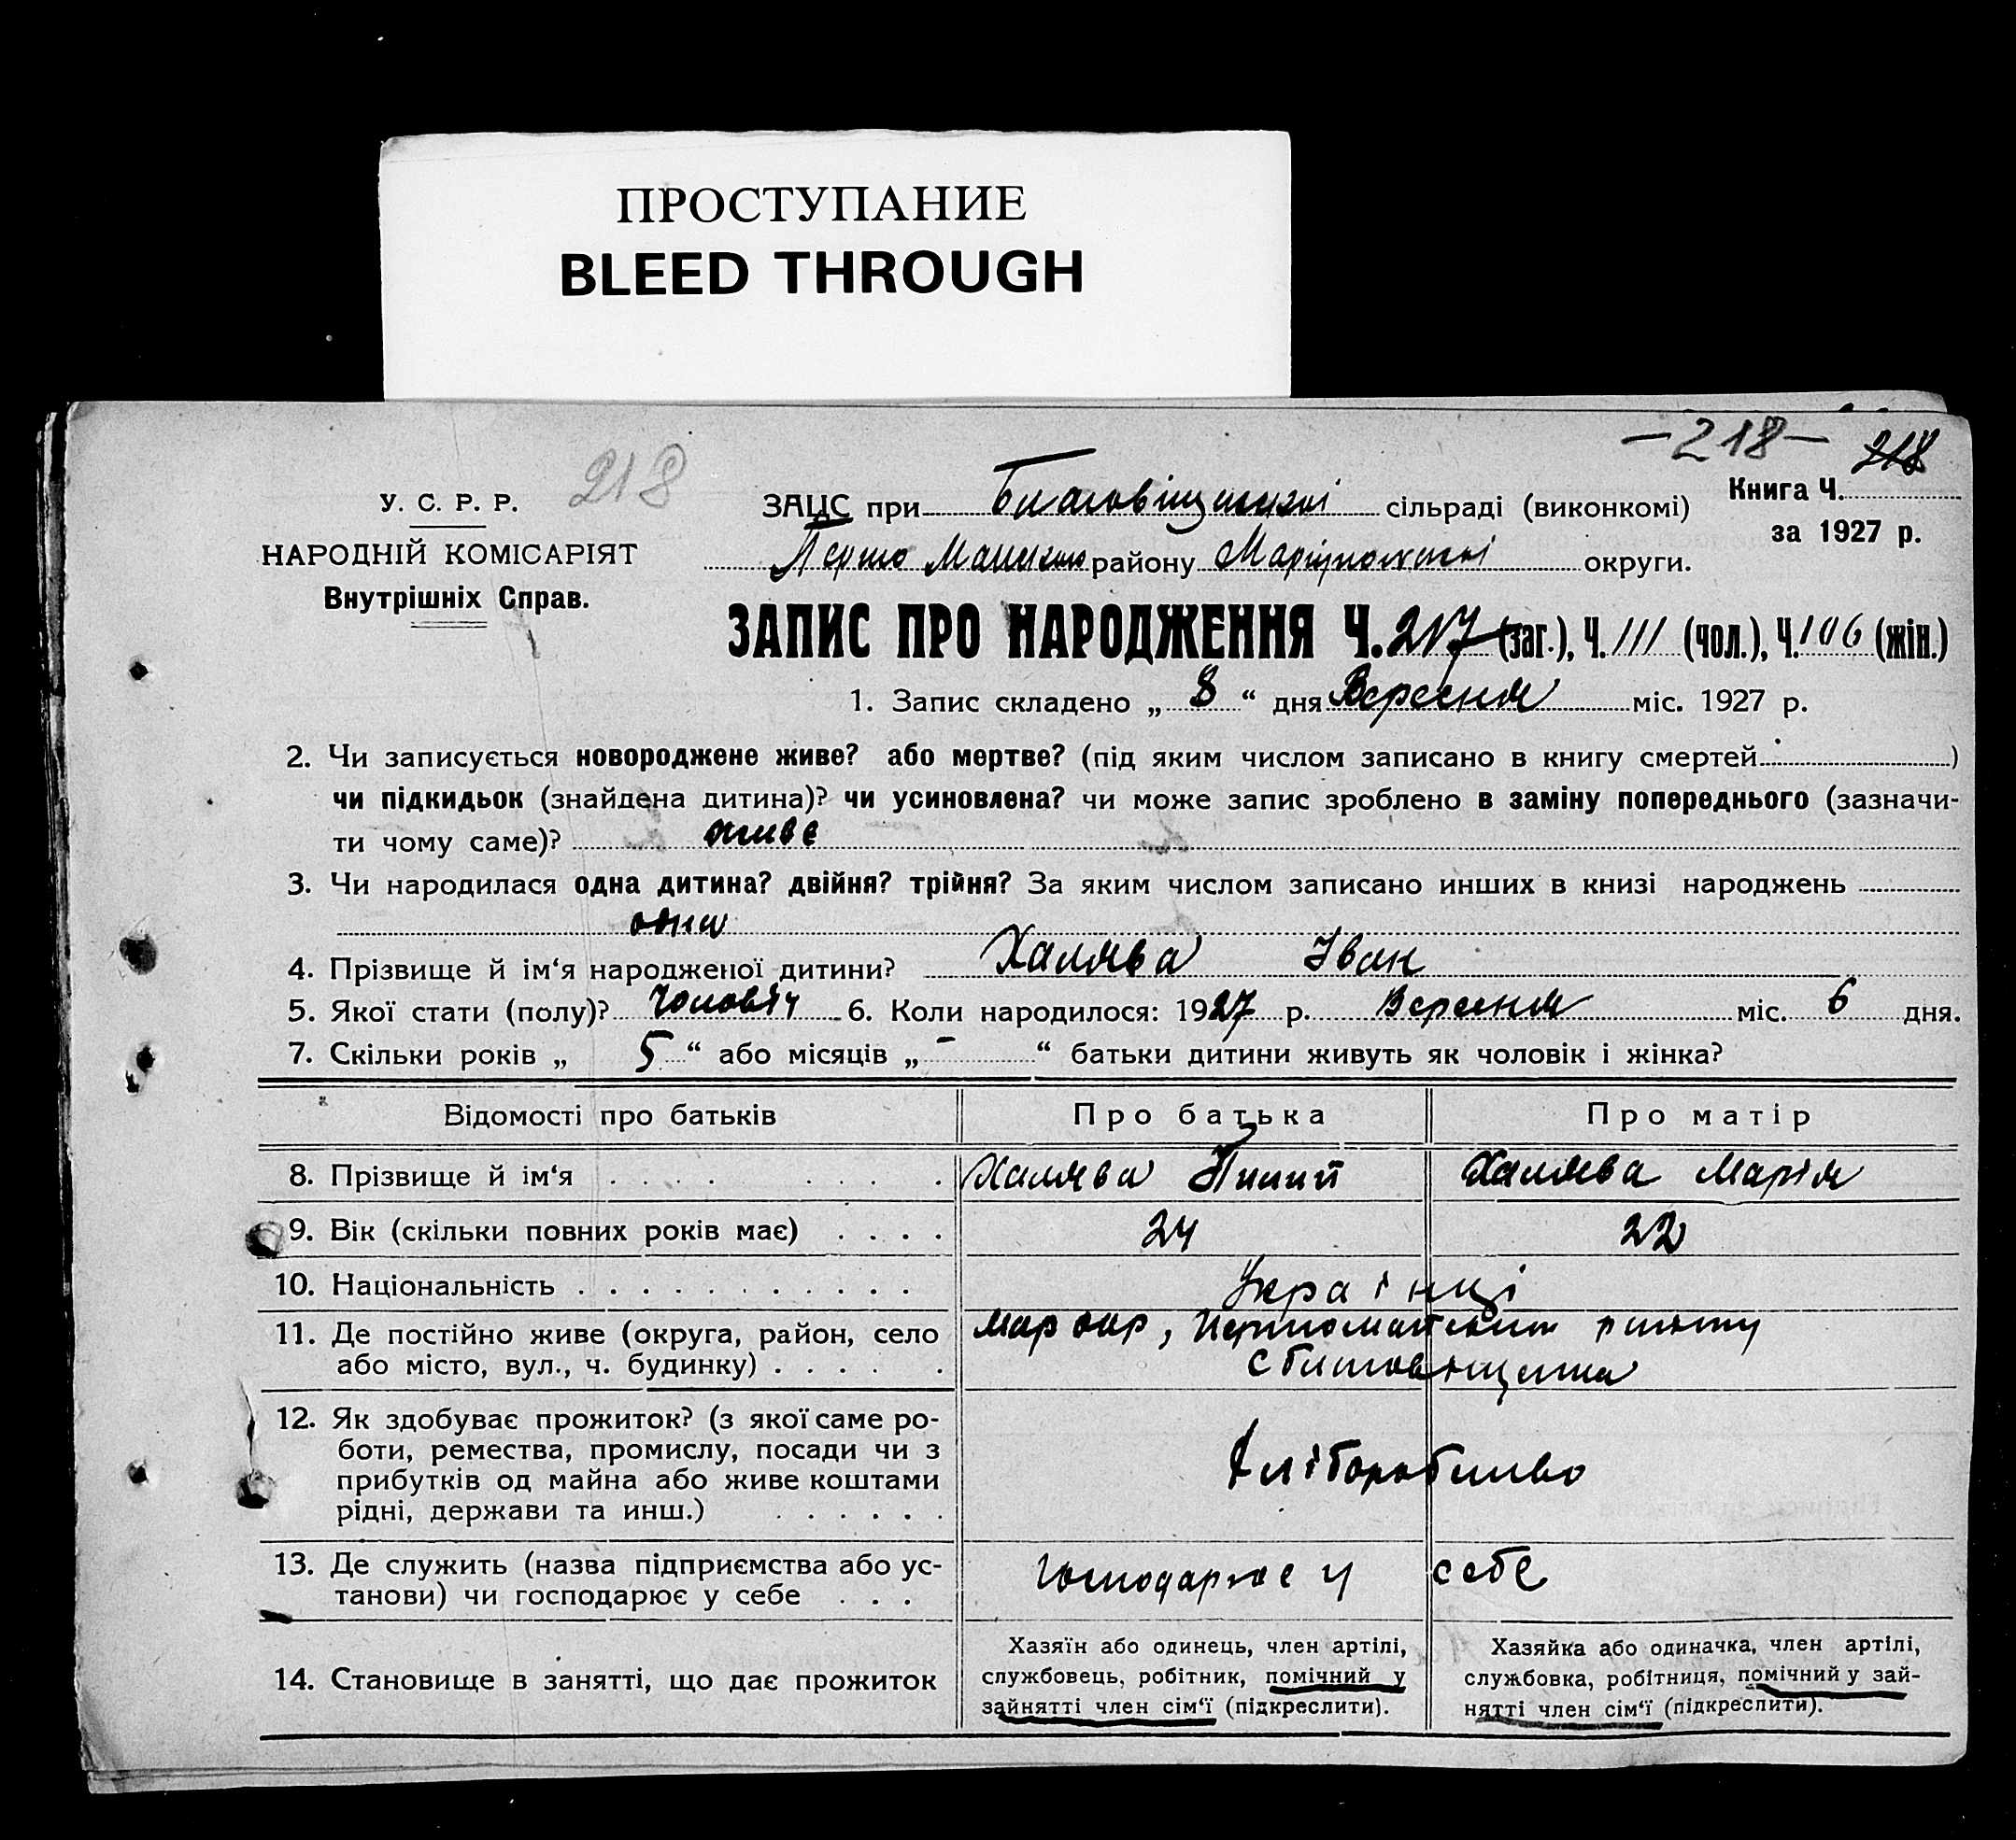 ПРОСТУПАНИЕ
BLEED THROUGH
-218- 218
218
У. С. Р. Р.
НАРОДНІЙ КОМІСАРІЯТ
Внутрішніх Справ.
ЗАЦС при Благовіщинскі сільраді (виконкомі)
Книга Ч.
за 1927 р.
Першо Майскою району Маріупольскі округи.
ЗАПИС ПРО НАРОДЖЕННЯ Ч. 217 (заг.), Ч. 111 (чол.), Ч. 106 (жін.)
1. Запис складено „ 8 “ дня Вересня міс. 1927 р.
2. Чи записується новороджене живе? або мертве? (під яким числом записано в книгу смертей )
чи підкидьок (знайдена дитина)? чи усиновлена? чи може запис зроблено в заміну попереднього (зазначи-
ти чому саме)? живе
3. Чи народилася одна дитина? двійня? трійня? За яким числом записано инших в книзі народжень
одна
4. Прізвище й ім‘я народженої дитини? Халява Іван
5. Якої стати (полу)? Чоловіч 6. Коли народилося: 1927 р. Вересня міс. 6 дня.
7. Скільки років „ 5 “ або місяців „ - “ батьки дитини живуть як чоловік і жінка?
Відомості про батьків Про батька Про матір
8. Прізвище й ім‘я Халява Пилип Халява Марія
9. Вік (скільки повних років має) 24 22
10. Національність Українці
11. Де постійно живе (округа, район, село
або місто, вул., ч. будинку)
Мар окр, Першомайским району
с Благовіщинка
12. Як здобуває прожиток? (з якої саме ро-
боти, ремества, промислу, посади чи з
прибутків од майна або живе коштами
рідні, держави та инш.)
Хліборобство
13. Де служить (назва підприємства або ус-
танови) чи господарює у себе
Господарює у себе
14. Становище в занятті, що дає прожиток
Хазяїн або одинець, член артілі,
службовець, робітник, помічний у
зайнятті член сім‘ї (підкреслити).
Хазяйка або одиначка, член артілі,
службовка, робітниця, помічний у зай-
нятті член сім‘ї (підкреслити).